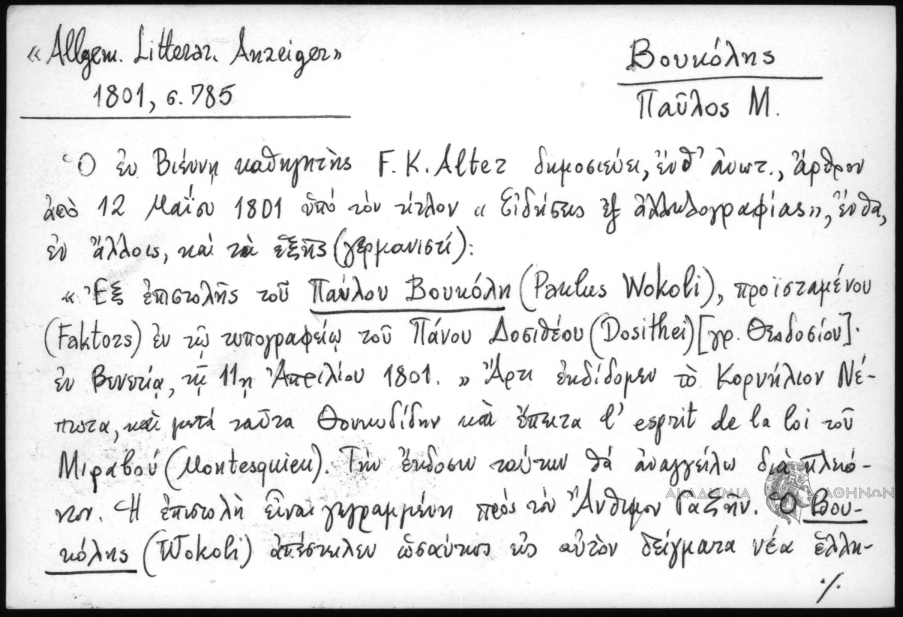 «Allgem. Litterar. Anzeiger»
1801, σ. 785
Βουκόλης
Παῦλος Μ.
Ὁ ἐν Βιέννῃ καθηγητὴς F. K. Alter δημοσιεύει, ἔνθ' ἀνωτ., ἄρθρον
ἀπὸ 12 Μαΐου 1801 ὑπὸ τὸν τίτλον «Εἰδήσεις ἐξ ἀλληλογραφίας», ἔνθα,
ἐν ἄλλοις, καὶ τὰ ἑξῆς (γερμανιστί):
«Ἐξ ἐπιστολῆς τοῦ Παύλου Βουκόλη (Paulus Wokoli), προϊσταμένου
(Faktors) ἐν τῷ τυπογραφείῳ τοῦ Πάνου Δοσιθέου (Dosithei) [γρ. Θεοδοσίου]·
ἐν Βενετίᾳ, τῇ 11ῃ Ἀπριλίου 1801. » Ἄρτι ἐκδίδομεν τὸ Κορνήλιον Νέ-
πωτα, καὶ μετὰ ταῦτα Θουκυδίδην καὶ ἔπειτα l' esprit de la loi τοῦ
Μιραβοῦ (Montesquieu). Τὴν ἔκδοσιν τούτων θὰ ἀναγγείλω διὰ πλειό-
νων. Ἡ ἐπιστολὴ εἶναι γεγραμμένη πρὸς τὸν Ἄνθιμον Γαζῆν. Ὁ Βου-
κόλης (Wokoli) ἀπέστειλεν ὡσαύτως εἰς αὐτὸν δείγματα νέα ἑλλη-
./.
ΑΚΑΔΗΜΙΑ ΑΘΗΝΩΝ